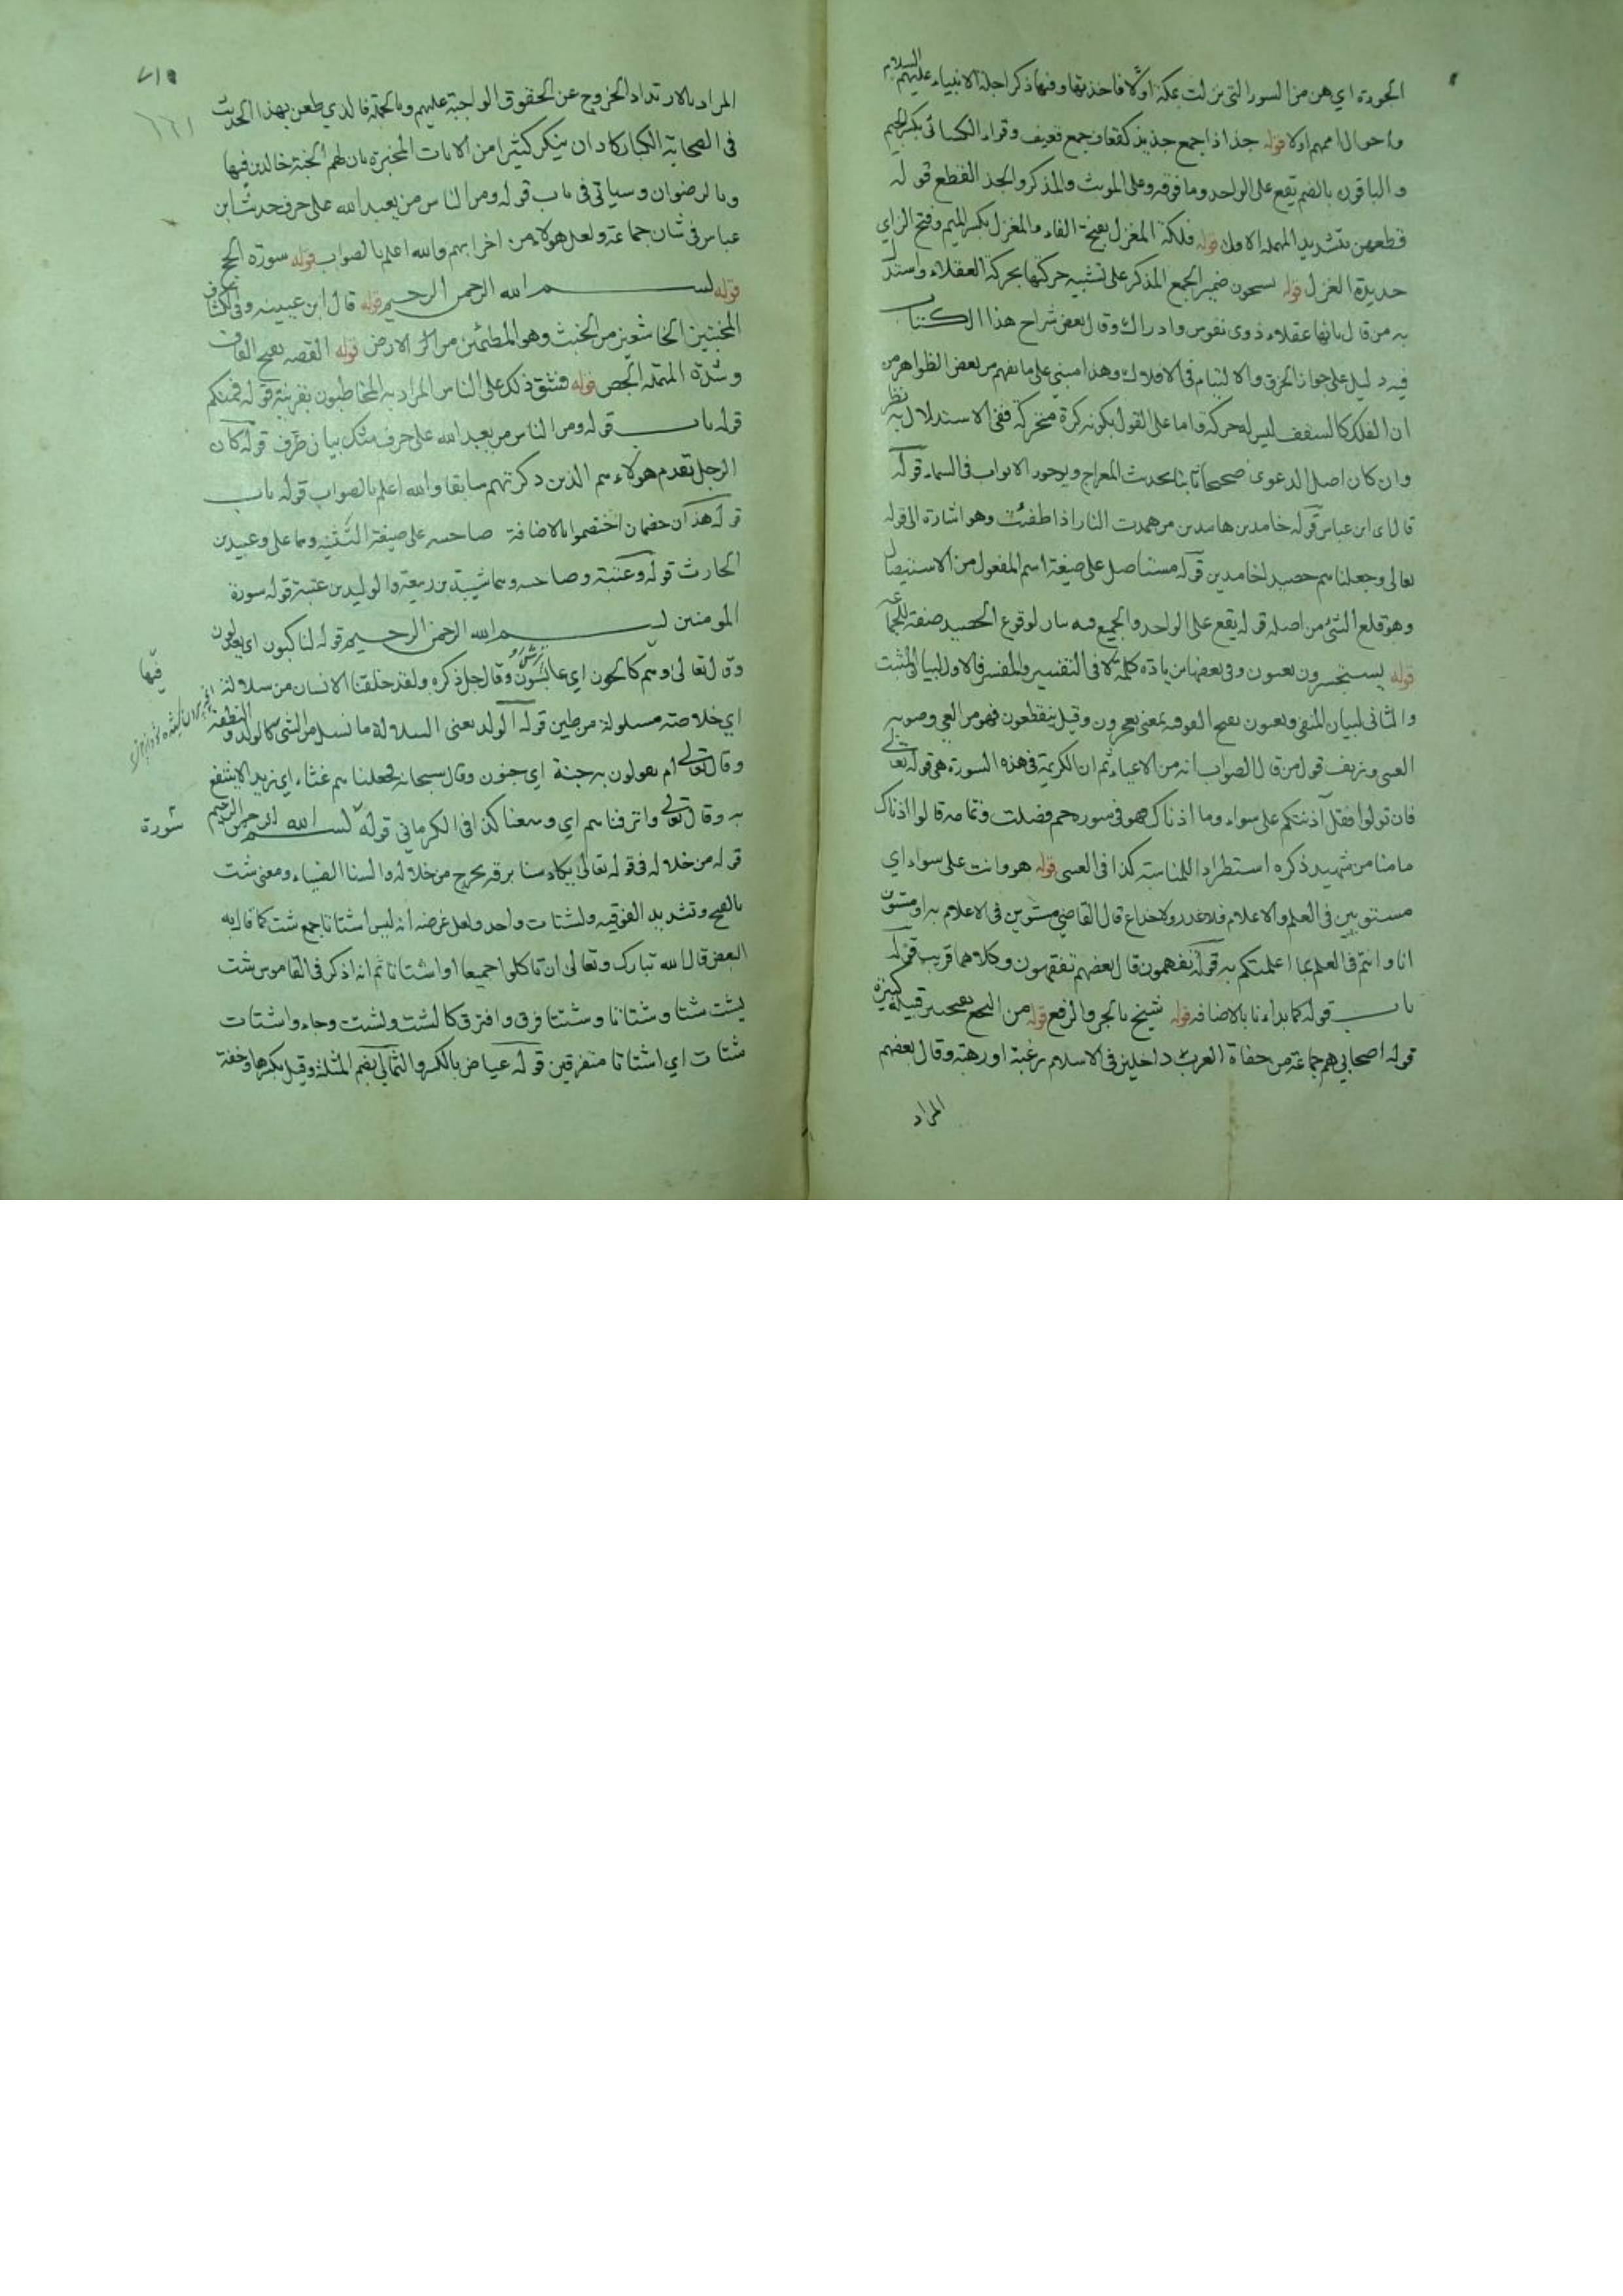 الجودة اي هن من السور التي نزلت بمكة اولا فاخذ بها وفيها ذكر اجلة الانبياء عليهم السلام
واحوال اممهم اولا قوله جذاذا جمع جذيذ كقعاف جمع قعيف وقراء الكسائي بكسر الجيم
والباقون بالضم يقع على الواحد وما فوقه وعلى المونث والمذكر والجذ القطع قوله
قطعهن بتشديد المهملة الاولى قوله فلكة المغزل بفتح الفاء والمغزل بكسر الميم وفتح الزاي
حديدة الغزل قوله يسبحون ضمير الجمع المذكر على تشبيه حركتها بحركة العقلاء واستدل
به من قال بانها عقلاء ذوى نفوس وادراك وقال بعض شراح هذا الكتاب
فيه دليل على جواز الخرق والالتيام في الافلاك وهذا مبني على ما يفهم من بعض الظواهر من
ان الفلك كالسقف ليس له حركة واما على القول بكونه كرة متحركة ففي الاستدلال به نظر
وان كان اصل الدعوى صحيحا ثابتا بحديث المعراج وبوجود الابواب في السماء قوله
قال اى ابن عباس قوله خامدين هامدين من همدت النار اذا طفئت وهو اشارة الى قوله
تعالى وجعلناهم حصيدا خامدين قوله مستاصل على صيغة اسم المفعول من الاستيصال
وهو قلع الشئ من اصله قوله يقع على الواحد والجميع فيه بيان لوقوع الحصيد صفة للجماعة
قوله يستحسرون يعيون وفي بعضها بزيادة كلمة لا في التفسير والمفسر فالاول لبيان المثبت
والثاني لبيان المنفي ويعيون بفتح الفوقية بمعنى يعجزون وقيل ينقطعون فهو من العي وصوبه
العيني وتزييف قول من قال الصواب انه من الاعياء ثم ان الكريمة في هذه السورة هي قوله تعالى
فان تولوا فقل آذنتكم على سواء وما اذناك فهو في سورة حم فصلت وتمامه قالوا اذناك
ما منا من شهيد ذكره استطرادا للمناسبة كذا في العيني قوله هو وانت على سواء اي
مستويين في العلم والاعلام فلا غدر ولا خداع قال القاضي مستويين في الاعلام به او مستوين
انا وانتم في العلم بما اعلمتكم به قوله تفهمون قال بعضهم تفقهون وكلاهما قريب قوله
باب قوله كما بدانا بالاضافة قوله شيخ بالجر والرفع قوله من النخع بفتحتين قبيلة كبيرة
قوله اصحابي هم جماعة من حفاة العرب داخلين في الاسلام رغبة او رهبة وقال بعضهم
المراد
المراد بالارتداد الخروج عن الحقوق الواجبة عليهم وبالجملة فالذي طعن بهذا الحديث
في الصحابة الكبار كاد ان ينكر كثيرا من الايات المخبرة بان لهم الجنة خالدين فيها
وبالرضوان وسياتي في باب قوله ومن الناس من يعبد الله على حرف حديث ابن
عباس في شان جماعة ولعل هؤلاء من اخرابهم والله اعلم بالصواب قوله سورة الحج
قوله بسم الله الرحمن الرحيم قوله قال ابن عيينه وفي الكشاف
المخبتين الخاشعين من الخبت وهو المطمئن من الارض قوله القصة بفتح القاف
وشدة المهملة الجص قوله فشق ذلك على الناس المراد به المخاطبون بقرينة قوله فمنكم
قوله باب قوله ومن الناس من يعبد الله على حرف شك بيان طرف قوله كان
الرجل يقدم هولاء هم الذين ذكرتهم سابقا والله اعلم بالصواب قوله باب
قوله هذان خصمان اختصموا بالاضافة صاحبيه على صيغة التثنية وهما علي وعبيدة بن
الحارث قوله وعتبة وصاحبيه وهما شيبة بن ربيعة والوليد بن عتبة قوله سورة
المومنين بسم الله الرحمن الرحيم قوله لناكبون اي يعدلون
وقال تعالى وهم كالحون اي عابسون وقال جل ذكره ولقد خلقنا الانسان من سلالة
اي خلاصة مسلولة من طين قوله الولد يعني السلالة ما نسل من الشئ كالولد والنطفة
وقال تعالى ام يقولون به جنة اي جنون وقال سبحانه فجعلناهم غثاء اي زبد الا ينتفع
به وقال تعالى واترفناهم اي وسعنا كذا في الكرماني قوله بسم الله الرحمن الرحيم
سورة
قوله من خلاله في قوله تعالى يكاد سنا برقه يخرج من خلاله والسنا الضياء ومعنى شت
بالفتح وتشديد الفوقية ولشتات واحد ولعل غرضه انه ليس اشتاتا جمع شت كما قرا به
البعض قال الله تبارك وتعالى ان تاكلوا جميعا او اشتاتا ثم انه ذكر في القاموس شت
يشت شتا وشتاتا وشتيتا فرق وافترق كالشت وتشتت وجاء واشتات
شتات اي اشتاتا متفرقين قوله عياض بالكسر والثمالي بضم المثلثة وقيل بكسرها وخفة